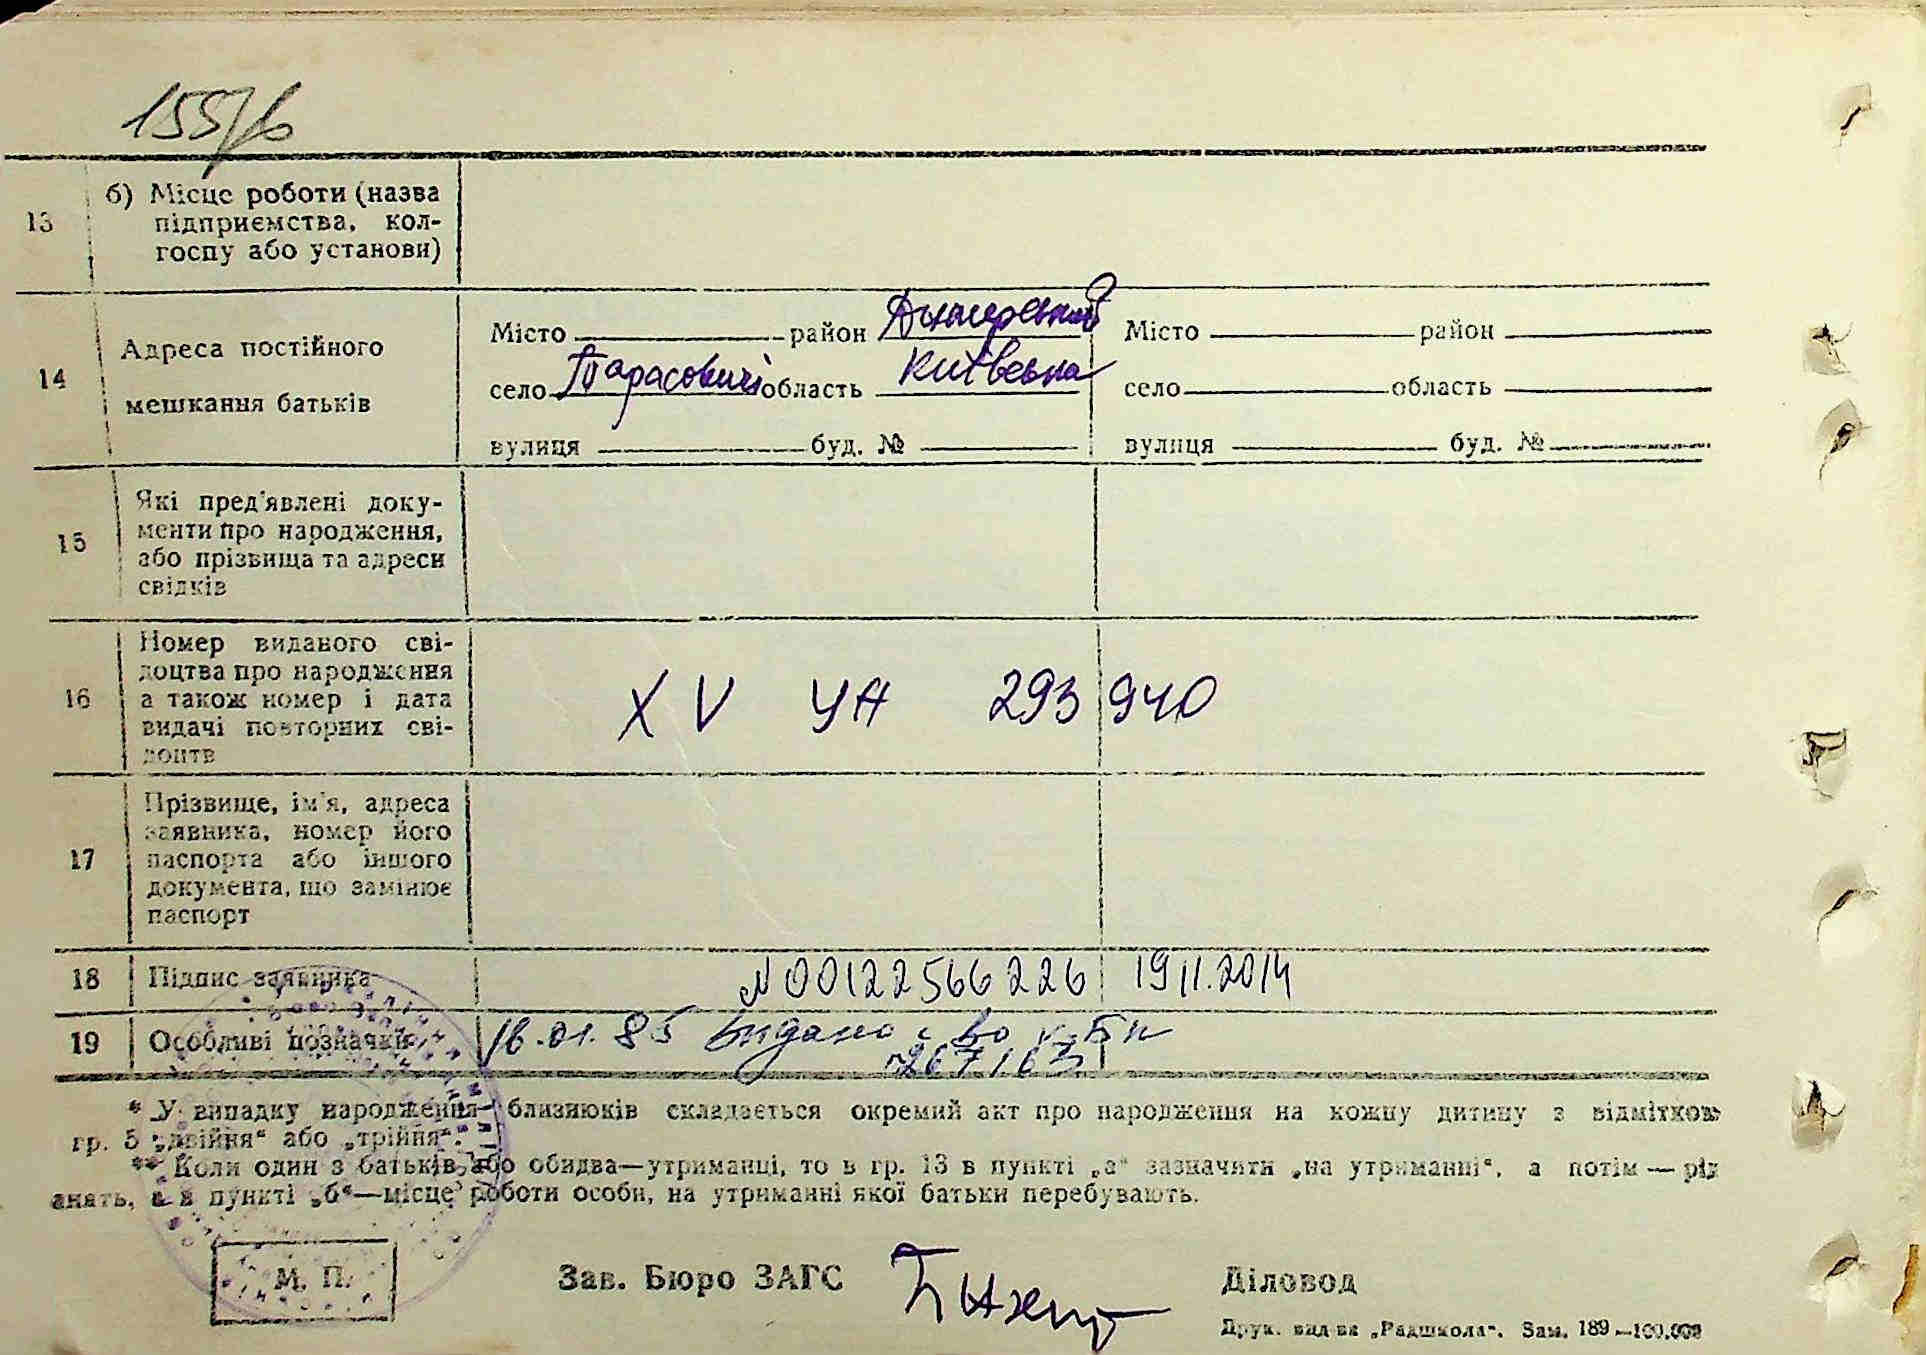 155/6
13 б) Місце роботи (назва
підприємства, кол-
госпу або установи)
14 Адреса постійного
мешкання батьків
Місто район Димерський Місто район
село Тарасовичі область Київська село область
вулиця буд. № вулиця буд. №
15 Які пред'явлені доку-
менти про народження,
або прізвища та адреси
свідків
16 Номер виданого сві-
доцтва про народження
а також номер і дата
видачі повторних сві-
доцтв
XV УА 293940
17 Прізвище, ім'я, адреса
заявника, номер його
паспорта або іншого
документа, що замінює
паспорт
18 Підпис заявника N00122566226 19 11.2014
19 Особливі позначки 16.01.85 видано с-во V-БК
267163
* У випадку народження близнюків складається окремий акт про народження на кожну дитину з відміткою
гр. 5 „двійня“ або „трійня“.
** Коли один з батьків або обидва—утриманці, то в гр. 13 в пункті „а“ зазначити „на утриманні“, а потім — рід
анять, а в пункті „б“—місце роботи особи, на утриманні якої батьки перебувають.
М. П. Зав. Бюро ЗАГС Діловод
Друк. вид-ва „Радшкола“. Зам. 189—100.000